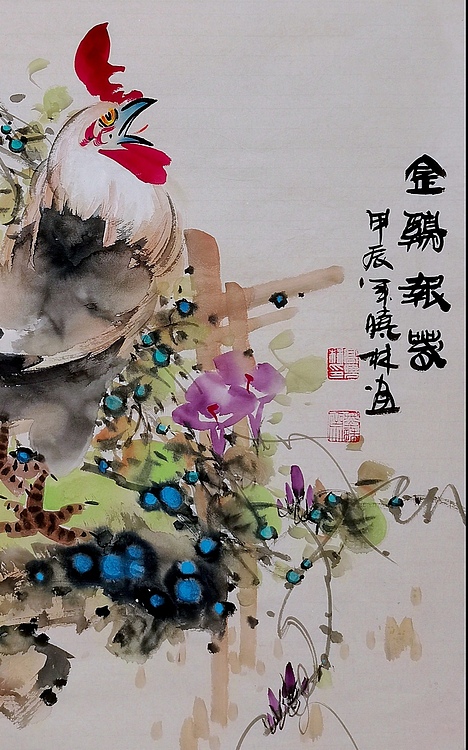 金鷄報歲
甲辰年曉林画